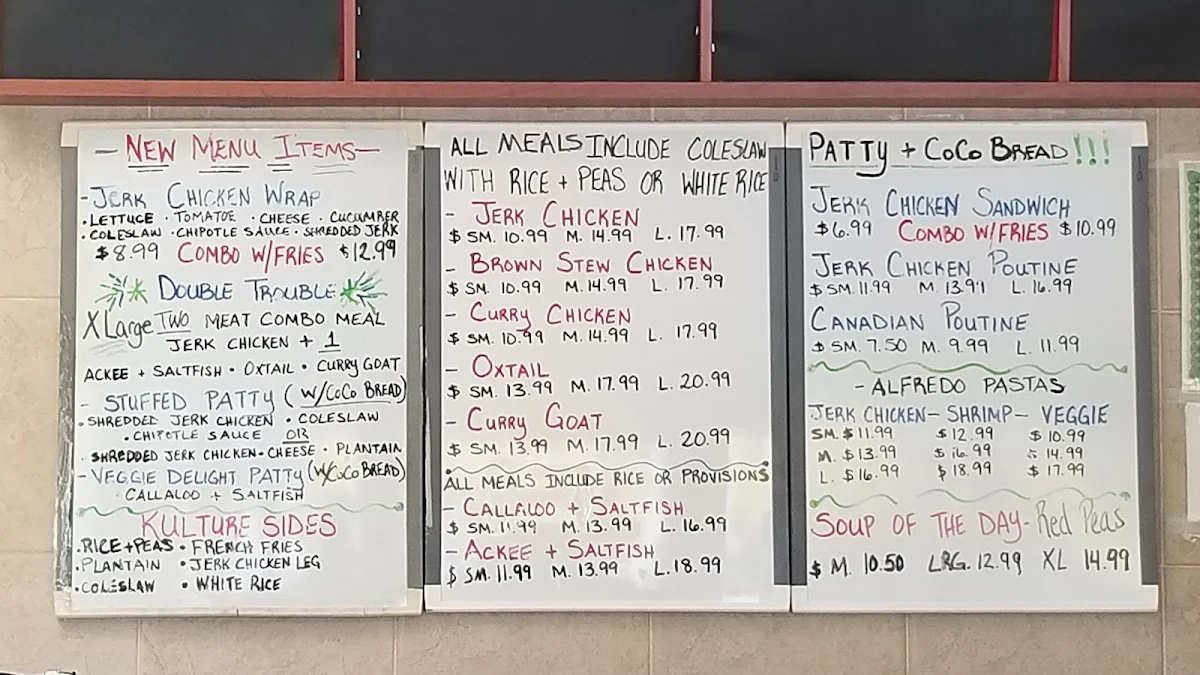 - NEW MENU ITEMS -
- JERK CHICKEN WRAP
• LETTUCE • TOMATOE • CHEESE • CUCUMBER
• COLESLAW • CHIPOTLE SAUCE • SHREDDED JERK
$8.99 COMBO W/FRIES $12.99
DOUBLE TROUBLE
XLarge TWO MEAT COMBO MEAL
JERK CHICKEN + 1
ACKEE + SALTFISH • OXTAIL • CURRY GOAT
- STUFFED PATTY (W/COCO BREAD)
• SHREDDED JERK CHICKEN • COLESLAW
• CHIPOTLE SAUCE OR
• SHREDDED JERK CHICKEN • CHEESE • PLANTAIN
- VEGGIE DELIGHT PATTY (W/COCO BREAD)
• CALLALOO + SALTFISH
KULTURE SIDES
• RICE + PEAS • FRENCH FRIES
• PLANTAIN • JERK CHICKEN LEG
• COLESLAW • WHITE RICE
ALL MEALS INCLUDE COLESLAW
WITH RICE + PEAS OR WHITE RICE
- JERK CHICKEN
$ SM. 10.99 M. 14.99 L. 17.99
- BROWN STEW CHICKEN
$ SM. 10.99 M. 14.99 L. 17.99
- CURRY CHICKEN
$ SM. 10.99 M. 14.99 L. 17.99
- OXTAIL
$ SM. 13.99 M. 17.99 L. 20.99
- CURRY GOAT
$ SM. 13.99 M. 17.99 L. 20.99
ALL MEALS INCLUDE RICE OR PROVISIONS
- CALLALOO + SALTFISH
$ SM. 11.99 M. 13.99 L. 16.99
- ACKEE + SALTFISH
$ SM. 11.99 M. 13.99 L. 18.99
PATTY + COCO BREAD!!!
JERK CHICKEN SANDWICH
$6.99 COMBO W/FRIES $10.99
JERK CHICKEN POUTINE
$ SM. 11.99 M. 13.99 L. 16.99
CANADIAN POUTINE
$ SM. 7.50 M. 9.99 L. 11.99
- ALFREDO PASTAS
JERK CHICKEN - SHRIMP - VEGGIE
SM. $11.99 $12.99 $10.99
M. $13.99 $16.99 $14.99
L. $16.99 $18.99 $17.99
SOUP OF THE DAY - Red Peas
$ M. 10.50 LRG. 12.99 XL 14.99